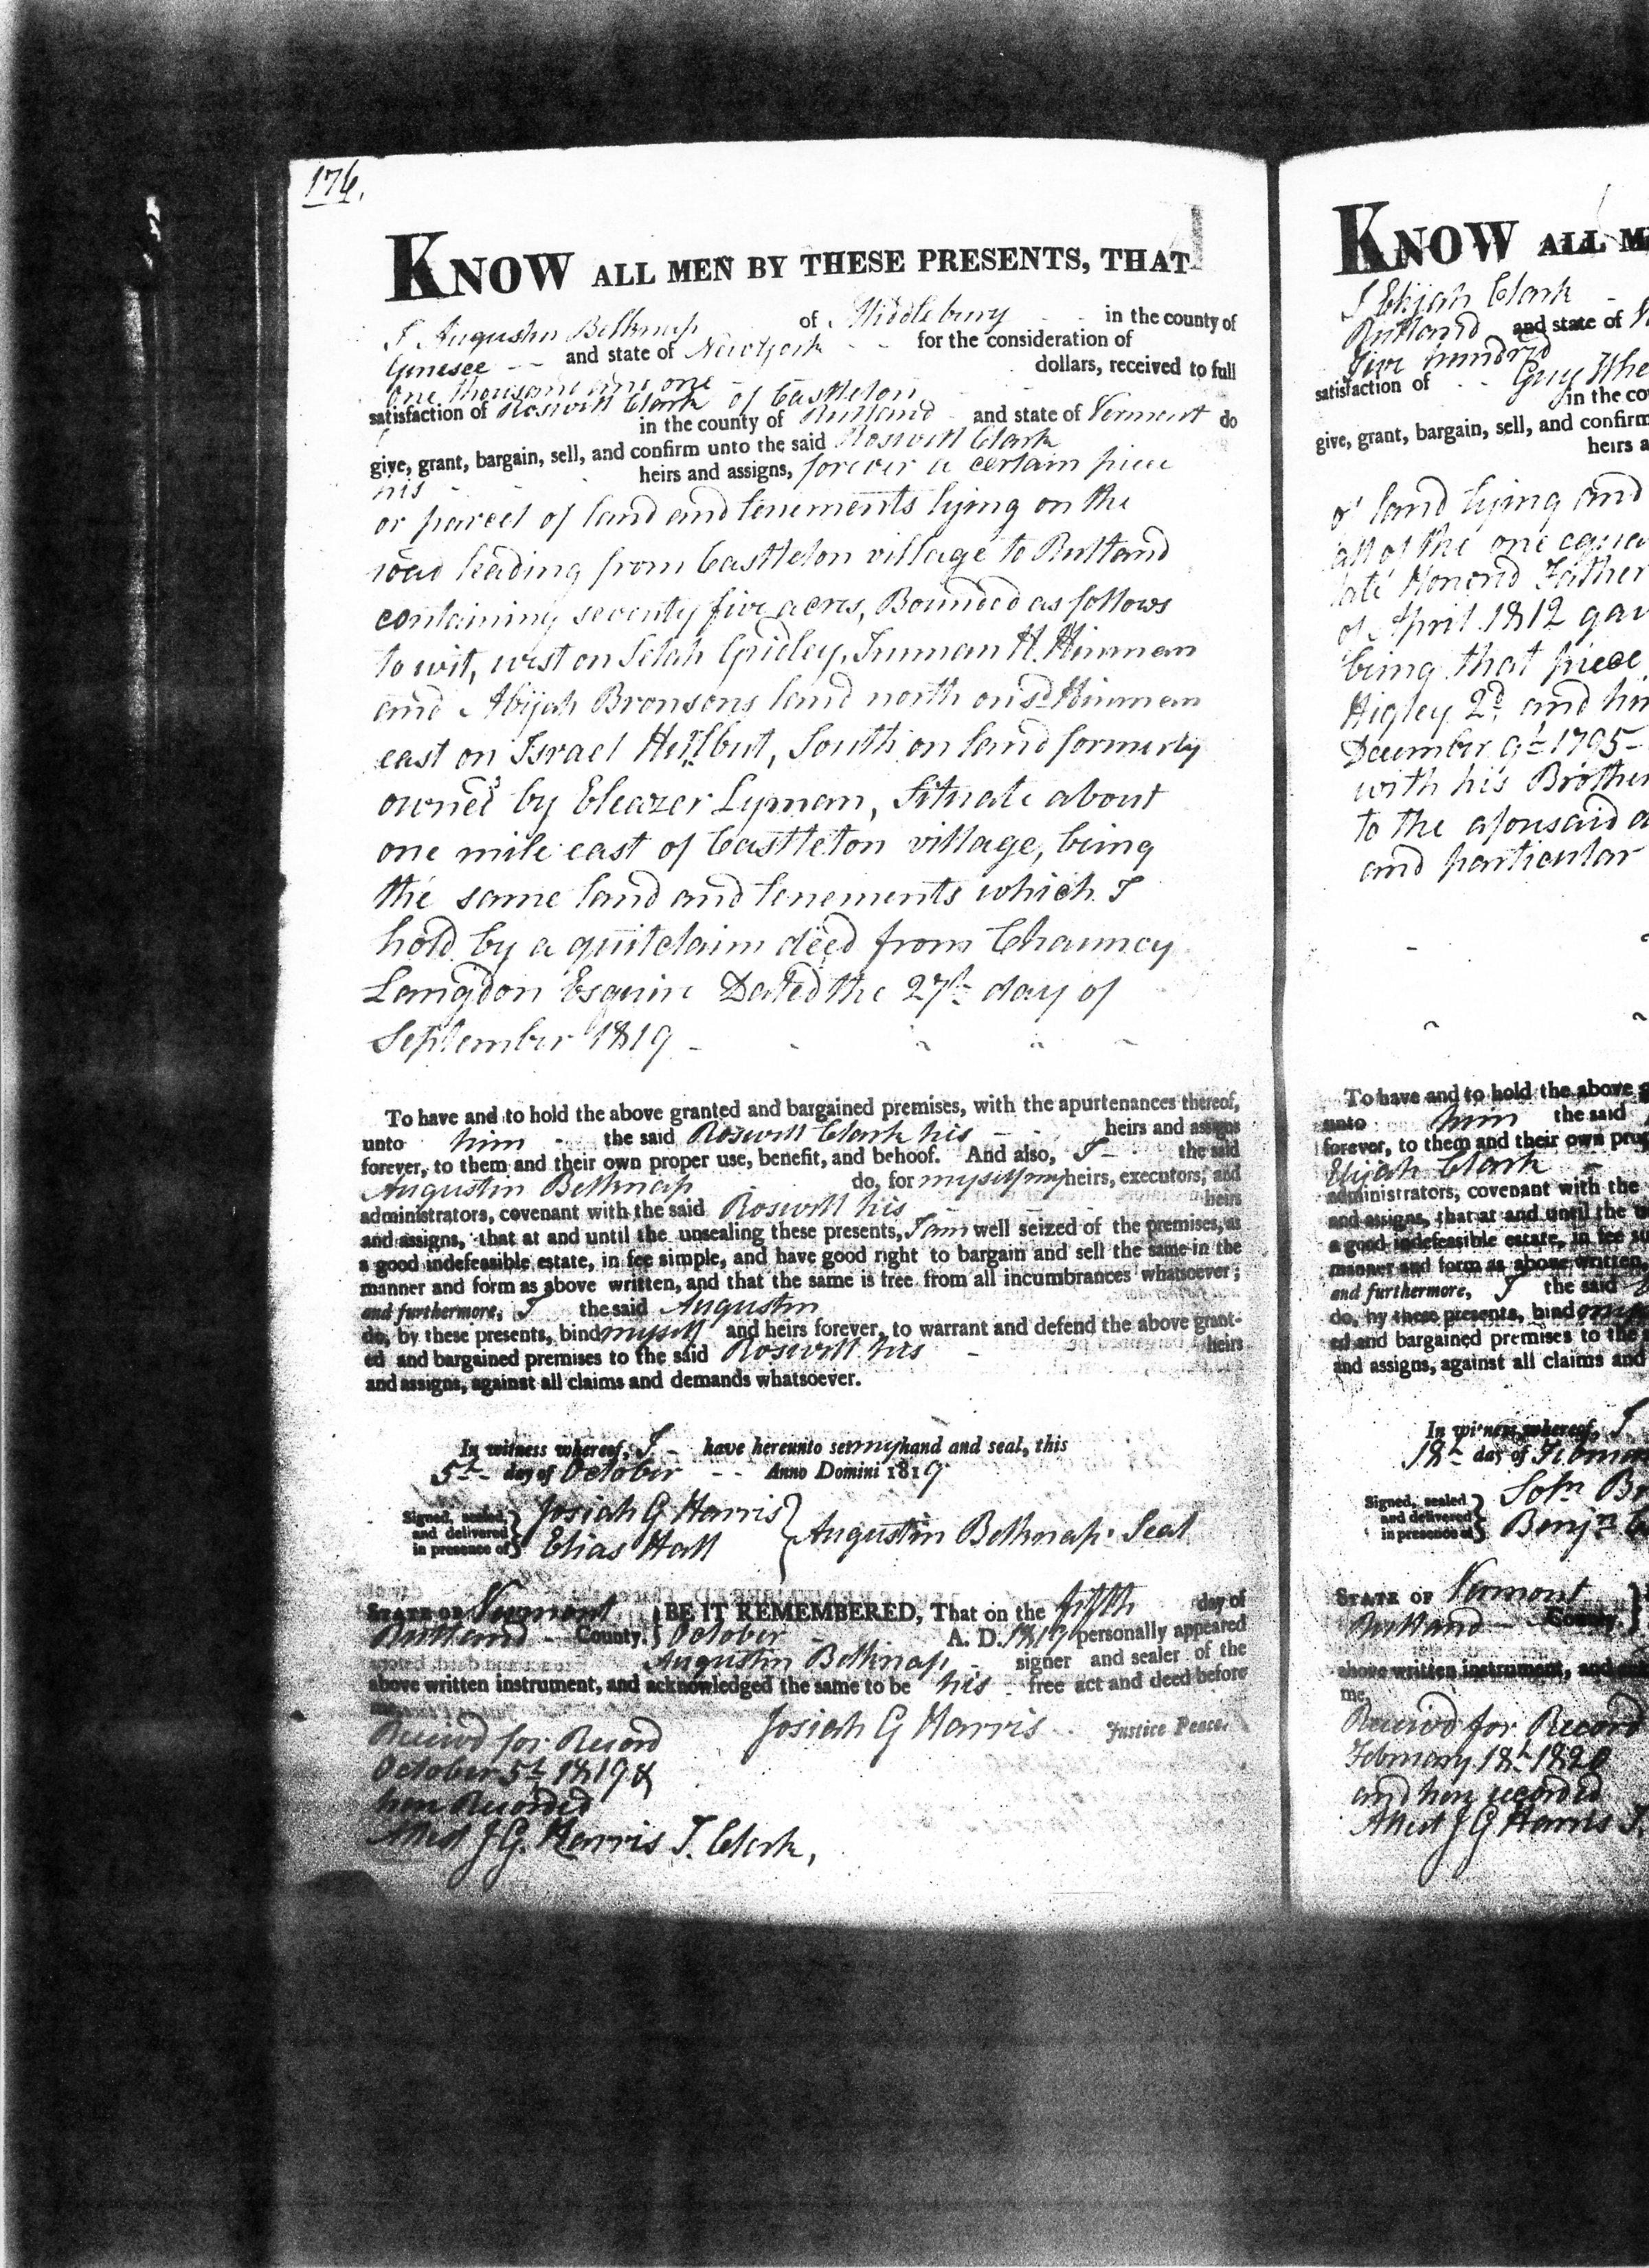 176.
KNOW ALL MEN BY THESE PRESENTS, THAT
I Augustin Belknap of Middlebury in the county of
Genesee -- and state of New York -- for the consideration of
One thousand and one - dollars, received to full
satisfaction of Roswill Clark of Castleton
in the county of Rutland and state of Vermont do
give, grant, bargain, sell, and confirm unto the said Roswill Clark
his heirs and assigns, forever a certain piece
or parcel of land and tenements lying on the
road leading from Castleton village to Rutland
containing seventy five acres, Bounded as follows
to wit, west on Selah Gridley, Truman H. Hinman
and Abijah Bronsons land north on sd Hinman
east on Israel Hurlbut, South on land formerly
owned by Eleazer Lyman, Situate about
one mile east of Castleton village, being
the same land and tenements which I
hold by a quitclaim deed from Chauncy
Langdon Esquire Dated the 27th day of
September 1819 -
To have and to hold the above granted and bargained premises, with the apurtenances thereof,
unto him - the said Roswill Clark his - heirs and assigns
forever, to them and their own proper use, benefit, and behoof. And also, I - the said
Augustin Belknap do, for myself my heirs, executors, and
administrators, covenant with the said Roswill his heirs
and assigns, that at and until the unsealing these presents, I am well seized of the premises, as
a good indefeasible estate, in fee simple, and have good right to bargain and sell the same in the
manner and form as above written, and that the same is free from all incumbrances whatsoever;
and furthermore, I the said Augustin
do, by these presents, bind myself and heirs forever, to warrant and defend the above grant-
ed and bargained premises to the said Roswill his - heirs
and assigns, against all claims and demands whatsoever.
In witness whereof, I - have hereunto set my hand and seal, this
5th day of October -- Anno Domini 1819
Signed, sealed, and delivered in presence of } Josiah G Harris
Elias Hall } Augustin Belknap. Seal
STATE OF Vermont } BE IT REMEMBERED, That on the fifth day of
Rutland - County. } October - A. D. 1819 personally appeared
Augustin Belknap, - signer and sealer of the
above written instrument, and acknowledged the same to be his - free act and deed before
me,
Josiah G Harris Justice Peace.
Receivd for Record
October 5th 1819 &
here Recorded
Attest J G. Harris T. Clerk,
KNOW ALL M
I Elijah Clark
Rutland and state of
Five hundred
satisfaction of - - Guy
in the co
give, grant, bargain, sell, and confirm
heirs a
of land lying and
all of the one equa
late Honord Father
of April 1812 gav
being that piece
Higley 2d and
December 9th 1795 -
with his Brother
to the aforesaid
and particular
To have and to hold the above
unto him the said
forever, to them and their own pro
Elijah Clark
administrators, covenant with the
and assigns, that at and until the
a good indefeasible estate, in fee
manner and form as above written,
and furthermore, I the said
do, by these presents, bind
ed and bargained premises to the
and assigns, against all claims and
In witness whereof, I
18th day of
Signed, sealed and delivered in presence of }
Benjn
STATE OF Vermont
Rutland - County. }
above written instrument, and
me,
Receivd for Record
February 18th 1820
and here recorded
Attest J G Harris T.